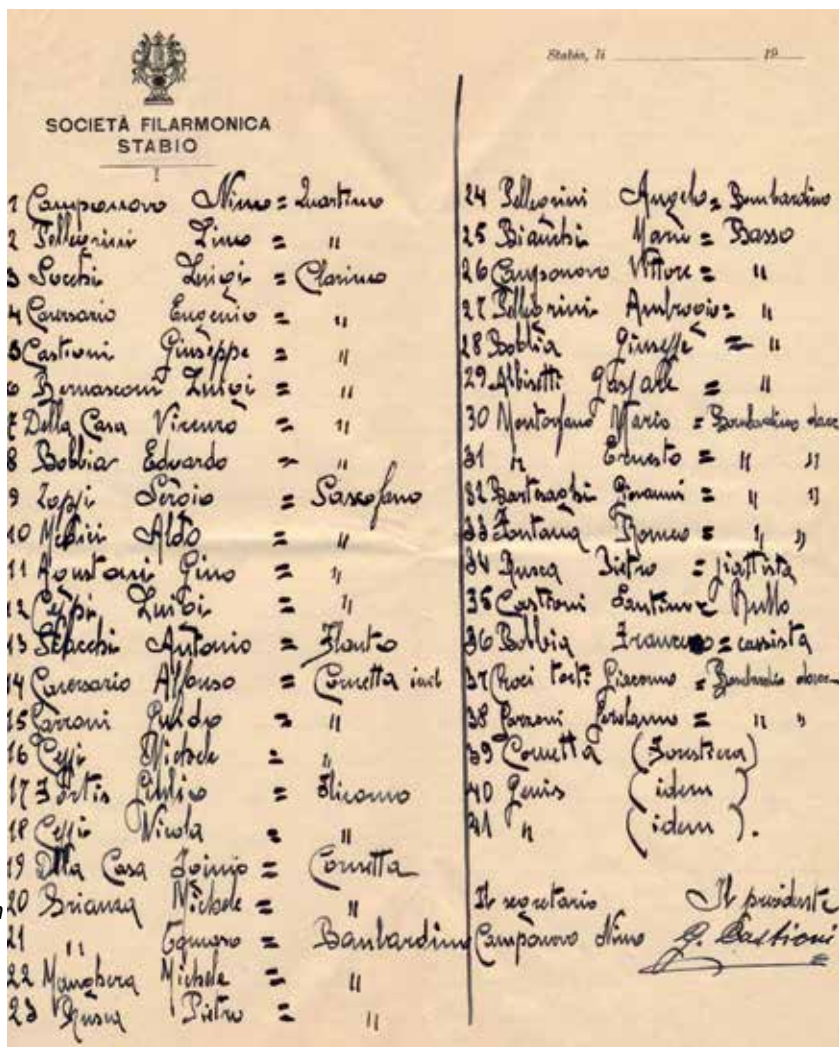 SOCIETÀ FILARMONICA
STABIO
Stabio, li 19
1 Camponovo Nino = Quartino
2 Pellegrini Lino = "
3 Socchi Luigi = Clarino
4 Caversario Eugenio = "
5 Castioni Giuseppe = "
6 Bernasconi Luigi = "
7 Della Casa Vicenzo = "
8 Bobbia Edoardo = "
9 Zoppi Sergio = Sassofano
10 Medici Aldo = "
11 Agustoni Gino = "
12 Ceppi Luigi = "
13 Stacchi Antonio = Flauto
14 Caversario Alfonso = Cornetta
15 Carroni Guido = "
16 Ceppi Michele = "
17 Fortis = Flicorno
18 Ceppi Nicola = "
19 Della Casa = Cornetta
20 Brianza Michele = "
21 " Tomaso = Bambardino
22 Manghera Michele = "
23 Rusca Pietro = "
24 Pellegrini Angelo = Bombardino
25 Bianchi Mario = Basso
26 Camponovo Vittore = "
27 Pellegrini Ambrogio = "
28 Bobbia Giuseppe = "
29 Albisetti Gaspare = "
30 Montorfano Mario = Bombardino
31 " Ernesto = " "
32 Barteraghi Giovanni = " "
33 Fontana Romeo = " "
34 Rusca Pietro = piattista
35 Castioni Santino = Rullo
36 Bobbia Francesco = cassista
37 Croci Torti Giacomo = Bombardino
38 Perolamo = " "
39 Cornetta (Forestiera)
40 Genis (idem)
41 " (idem).
Il segretario Il presidente
Camponovo Nino G. Castioni